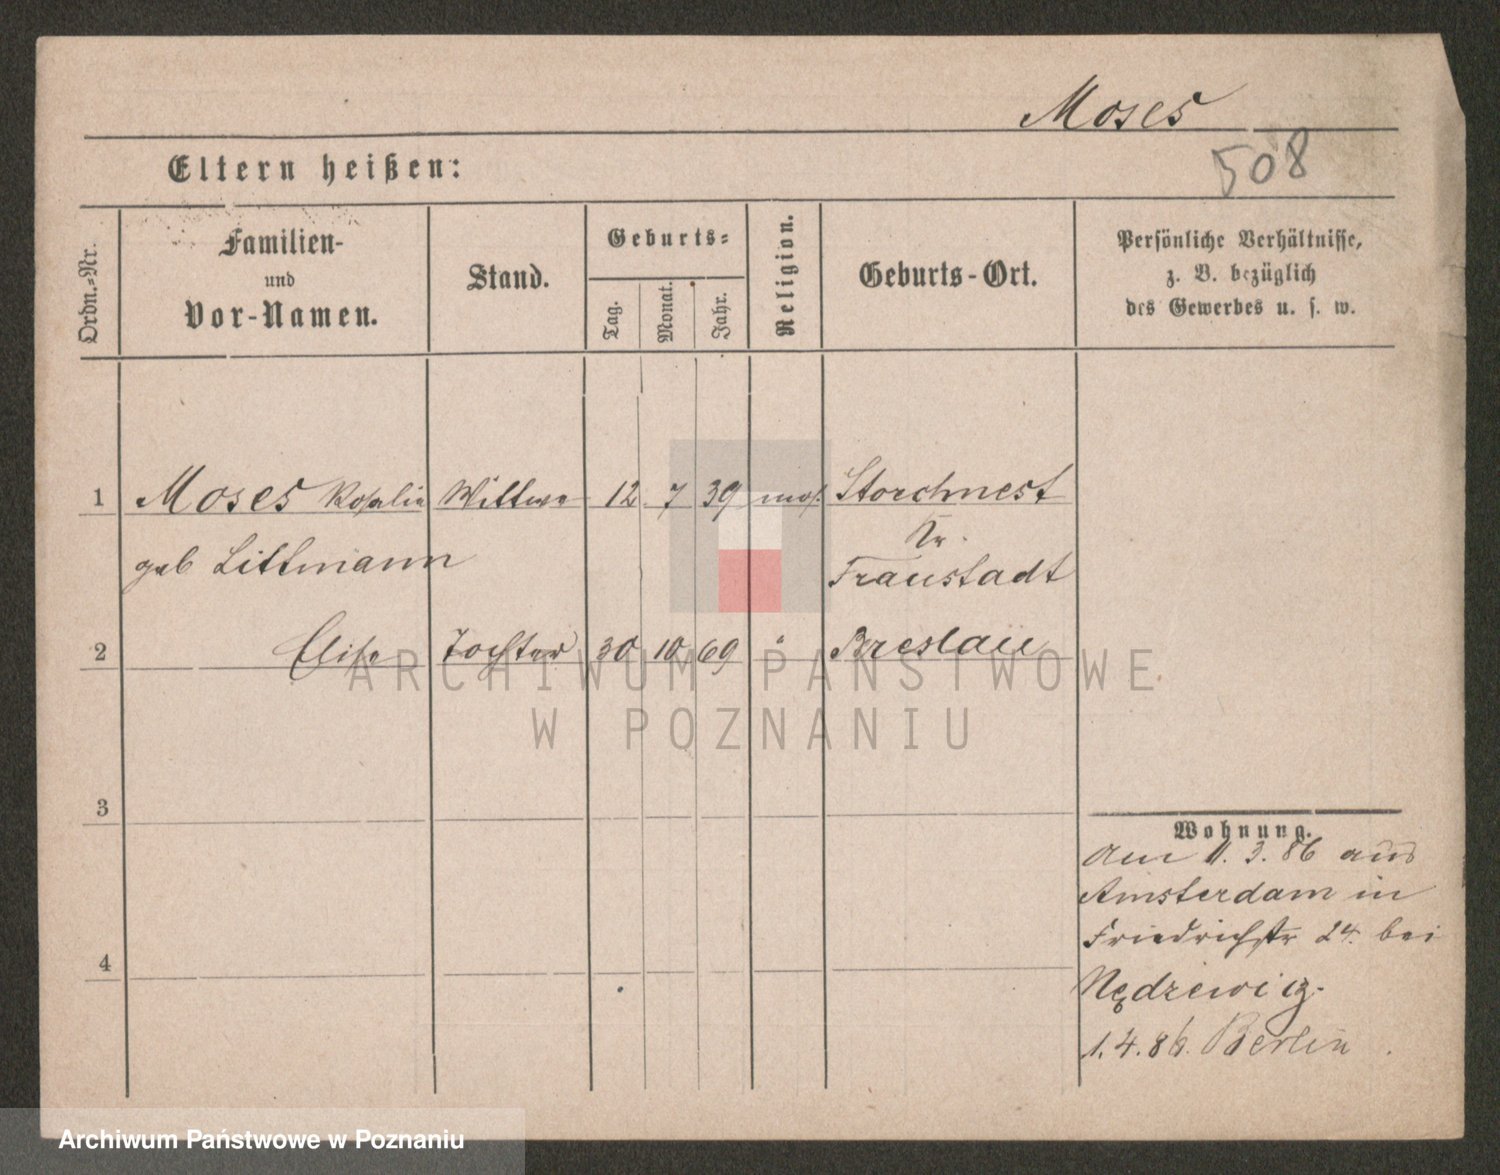 Moses
508
Eltern heißen:
Ordn.-Nr.
Familien-
und
Vor-Namen.
Stand.
Geburts-
Tag.
Monat.
Jahr.
Religion.
Geburts-Ort.
Persönliche Verhältnisse,
z. B. bezüglich
des Gewerbes u. s. w.
1 Moses Rosalie Wittwe 12 7 39 mos. Storchnest
Kr.
geb Littmann Fraustadt
2 Elise Tochter 30 10 69 " Breslau
ARCHIWUM PAŃSTWOWE
W POZNANIU
3
Wohnung.
am 1. 3. 86 aus
Amsterdam in
Friedrichstr 24. bei
4
Nędzewicz.
1. 4. 86. Berlin.
Archiwum Państwowe w Poznaniu